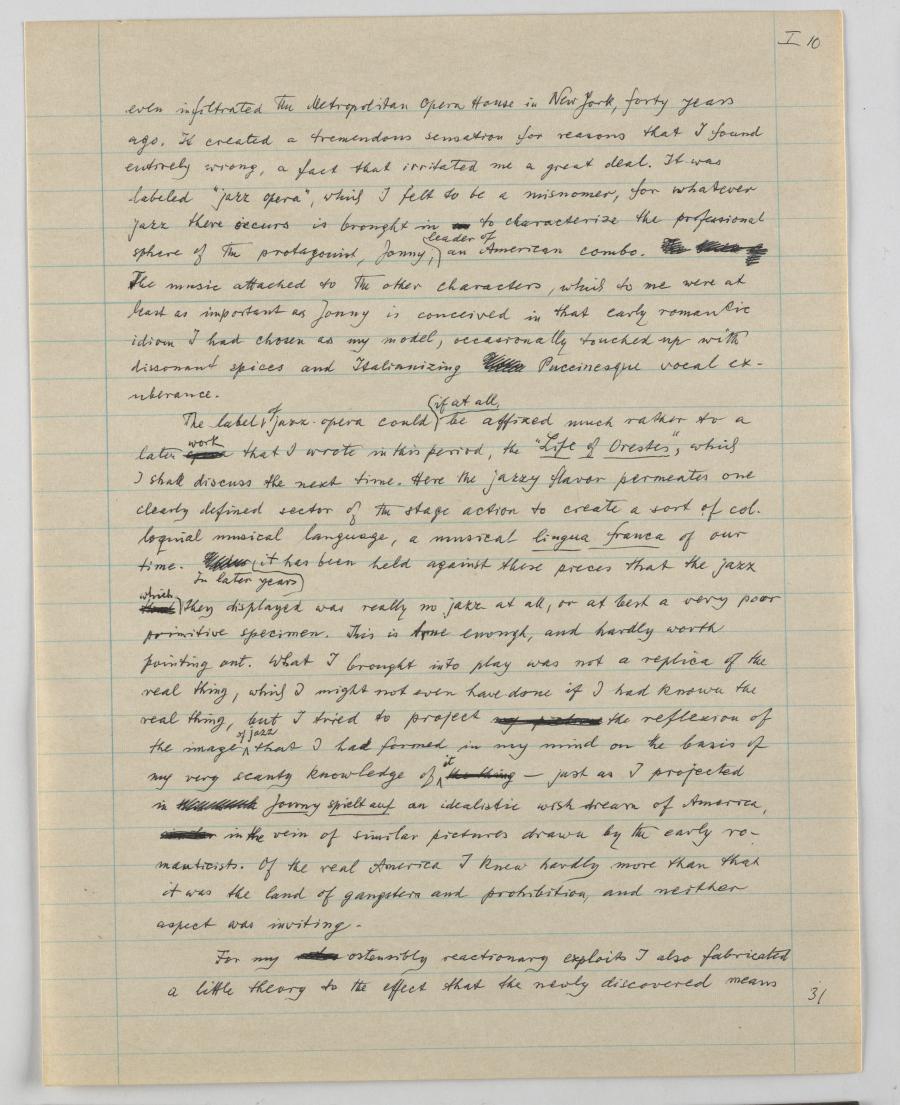 I 10
even infiltrated the Metropolitan Opera House in New York, forty years
ago. It created a tremendous sensation for reasons that I found
entirely wrong, a fact that irritated me a great deal. It was
labeled "jazz opera", which I felt to be a misnomer, for whatever
jazz there occurs is brought in to characterize the professional
sphere of the protagonist, Jonny, leader of an American combo.
The music attached to the other characters, which to me were at
least as important as Jonny is conceived in that early romantic
idiom I had chosen as my model, occasionally touched up with
dissonant spices and Italianizing Puccinesque vocal ex-
uberance.
The label of jazz-opera could if at all, be affixed much rather to a
later work that I wrote in this period, the "Life of Orestes", which
I shall discuss the next time. Here the jazzy flavor permeates one
clearly defined sector of the stage action to create a sort of col-
loquial musical language, a musical lingua franca of our
time. In later years it has been held against these pieces that the jazz
which they displayed was really no jazz at all, or at best a very poor
primitive specimen. This is true enough, and hardly worth
pointing out. What I brought into play was not a replica of the
real thing, which I might not even have done if I had known the
real thing, but I tried to project the reflexion of
the image of jazz that I had formed in my mind on the basis of
my very scanty knowledge of it — just as I projected
in Jonny spielt auf an idealistic wish dream of America,
in the vein of similar pictures drawn by the early ro-
manticists. Of the real America I knew hardly more than that
it was the land of gangsters and prohibition, and neither
aspect was inviting.
For my ostensibly reactionary exploits I also fabricated
a little theory to the effect that the newly discovered means
31